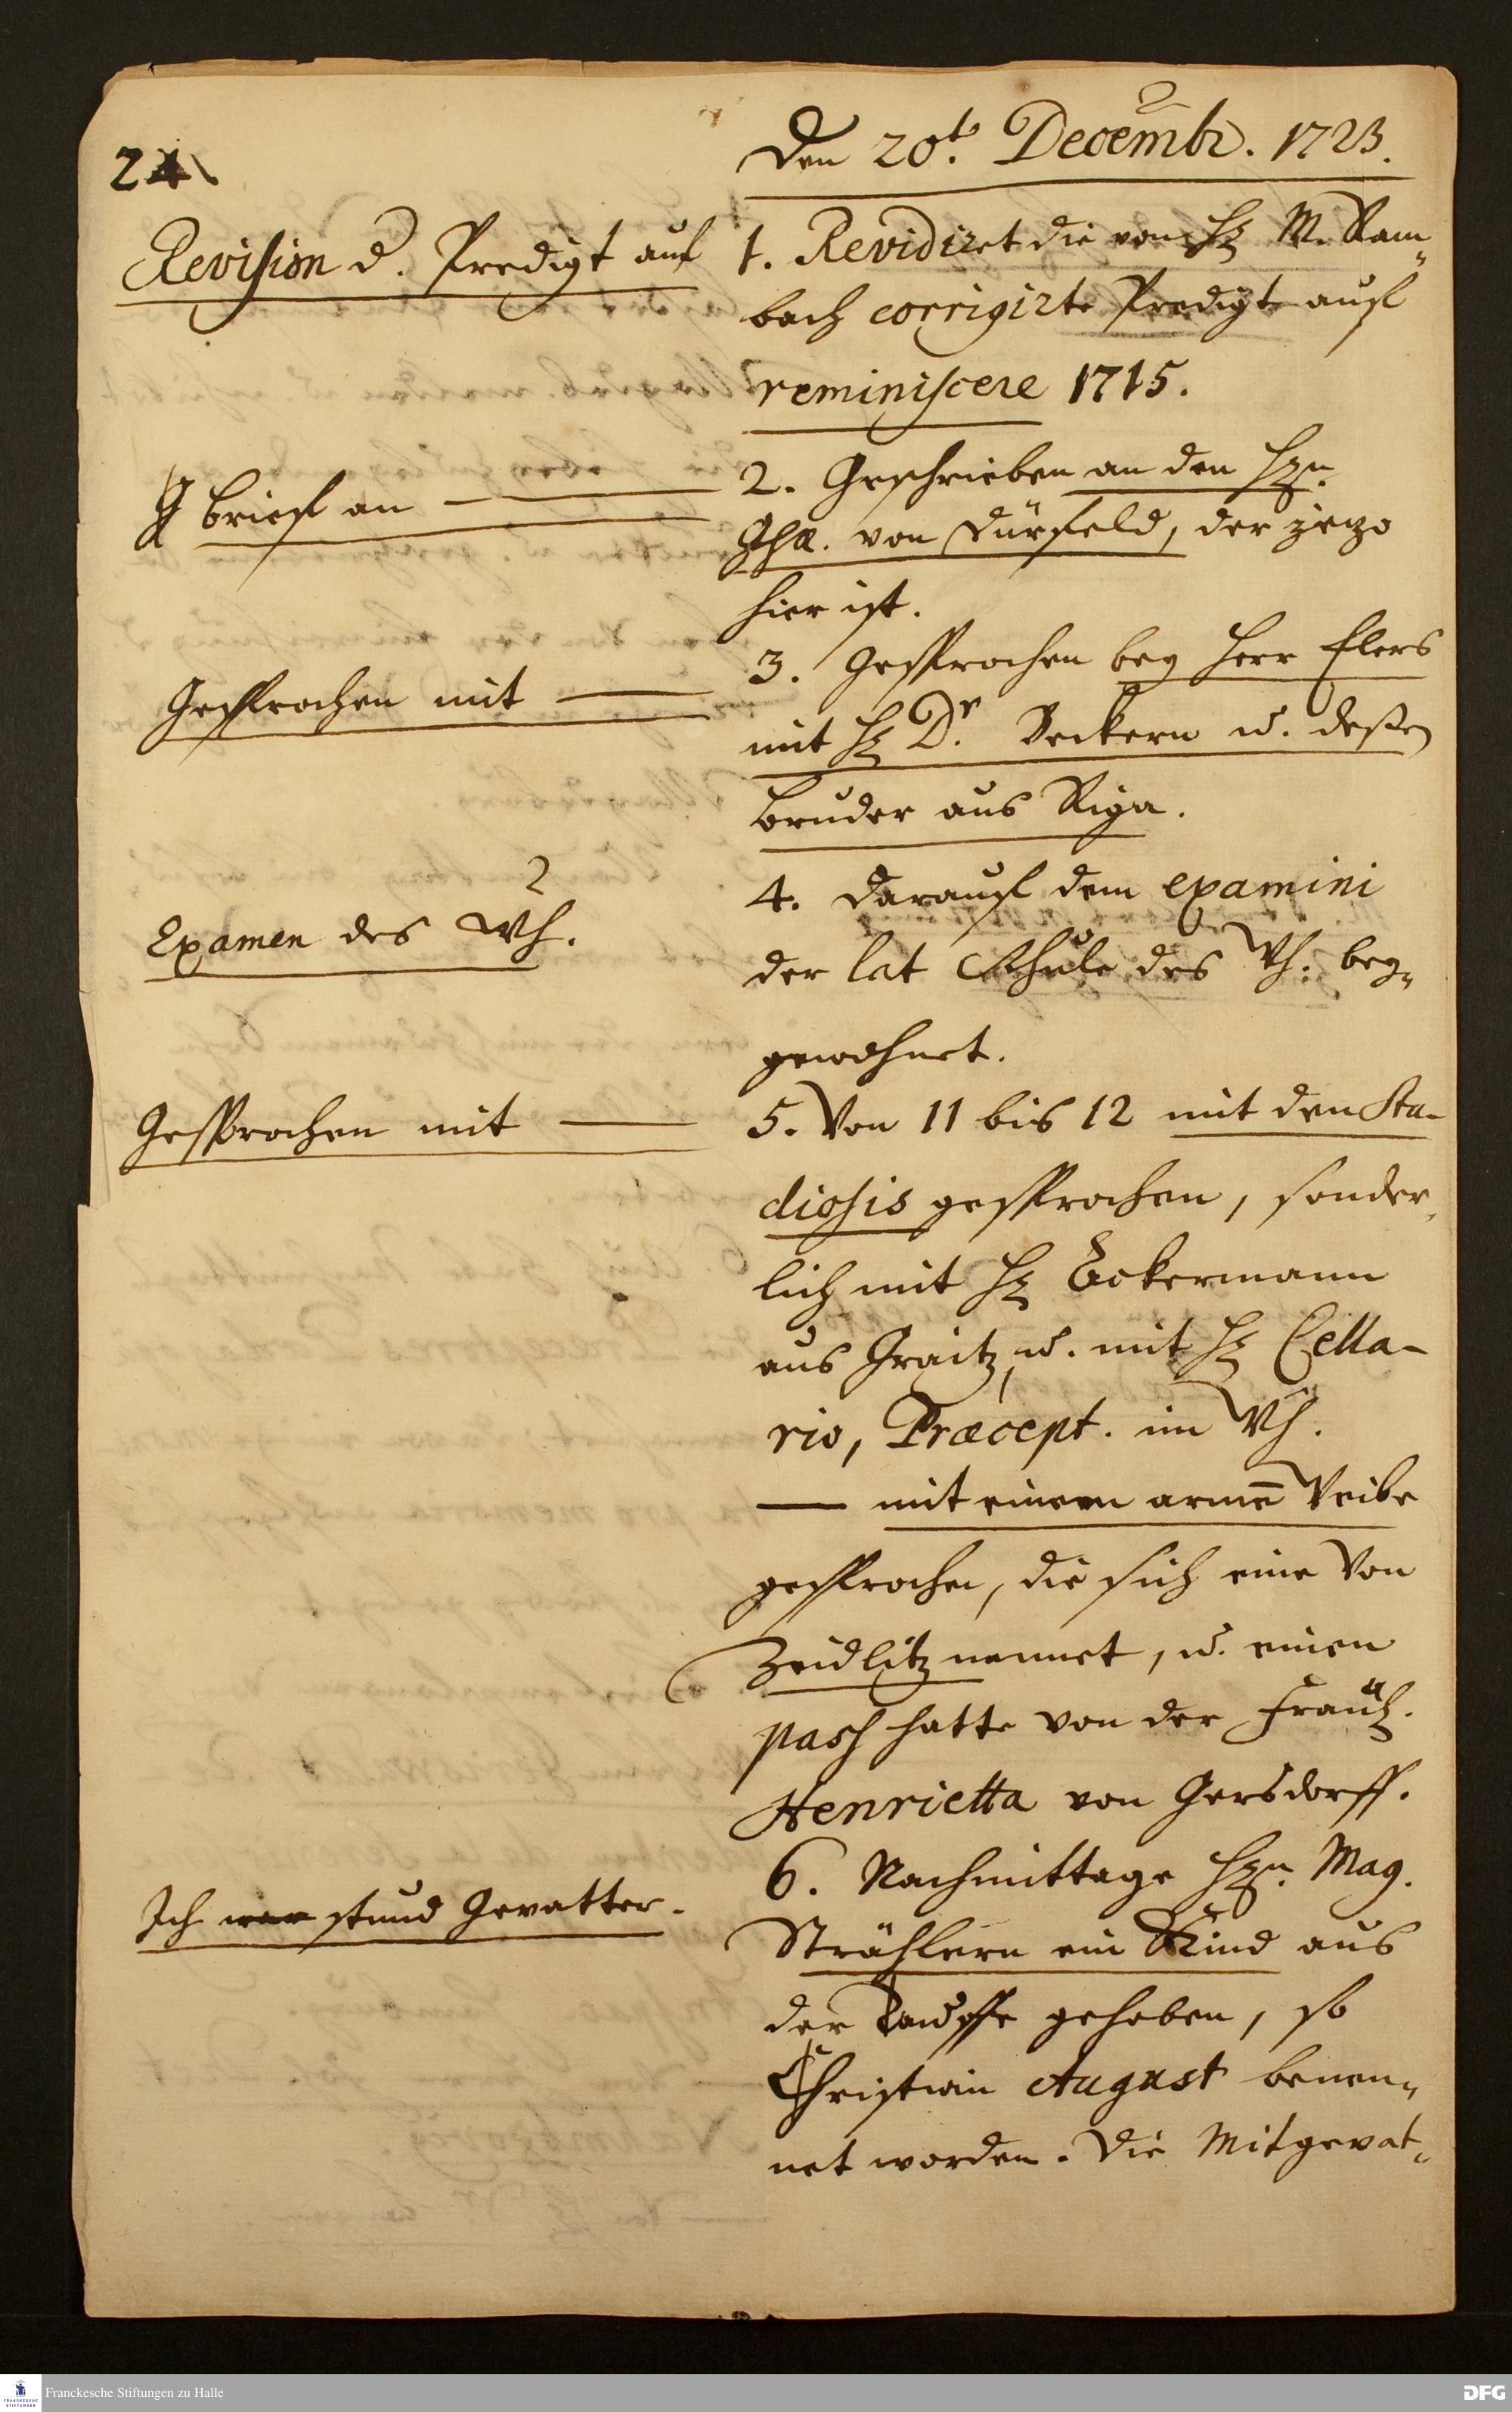 24
Den 20t. Decembr. 1723.
Revision d. Predigt auf
1. Revidiret die von H. M. Ram„
bach corrigirte Predigt auf
reminiscere 1715.
Brief an ———
2. Geschrieben an den Hrn.
von Dürfeld, der jezo
hier ist.
Gesprochen mit ———
3. Gesprochen bey Herr Elers
mit H. Dr. Beckern u. deßen
Bruder aus Riga.
Examen des Wh.
4. Darauf dem examini
der lat Schule des Wh. bey„
gewohnet.
Gesprochen mit ———
5. Von 11 bis 12 mit den Stu-
diosis gesprochen, sonder„
lich mit H. Eckermann
aus Graitz, u. mit H. Cella-
rio, Præcept. im Wh.
— mit einem arme̅ Weibe
gesprochen, die sich eine von
Zeidlitz nennet, u. einen
pass hatte von der Fräul.
Henrietta von Gersdorff.
Ich war stund Gevatter.
6. Nachmittage Hrn. Mag.
Strählern ein Kind aus
der Tauffe gehoben, so
Christian August benen„
net worden. Die Mitgevat„
Franckesche Stiftungen zu Halle
DFG